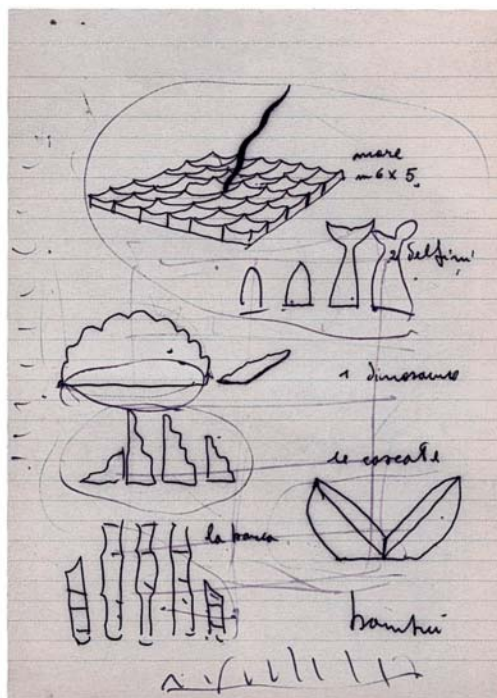 mare
m 6 x 5
2 delfini
1 dinosauro
le cascate
la barca
bambù